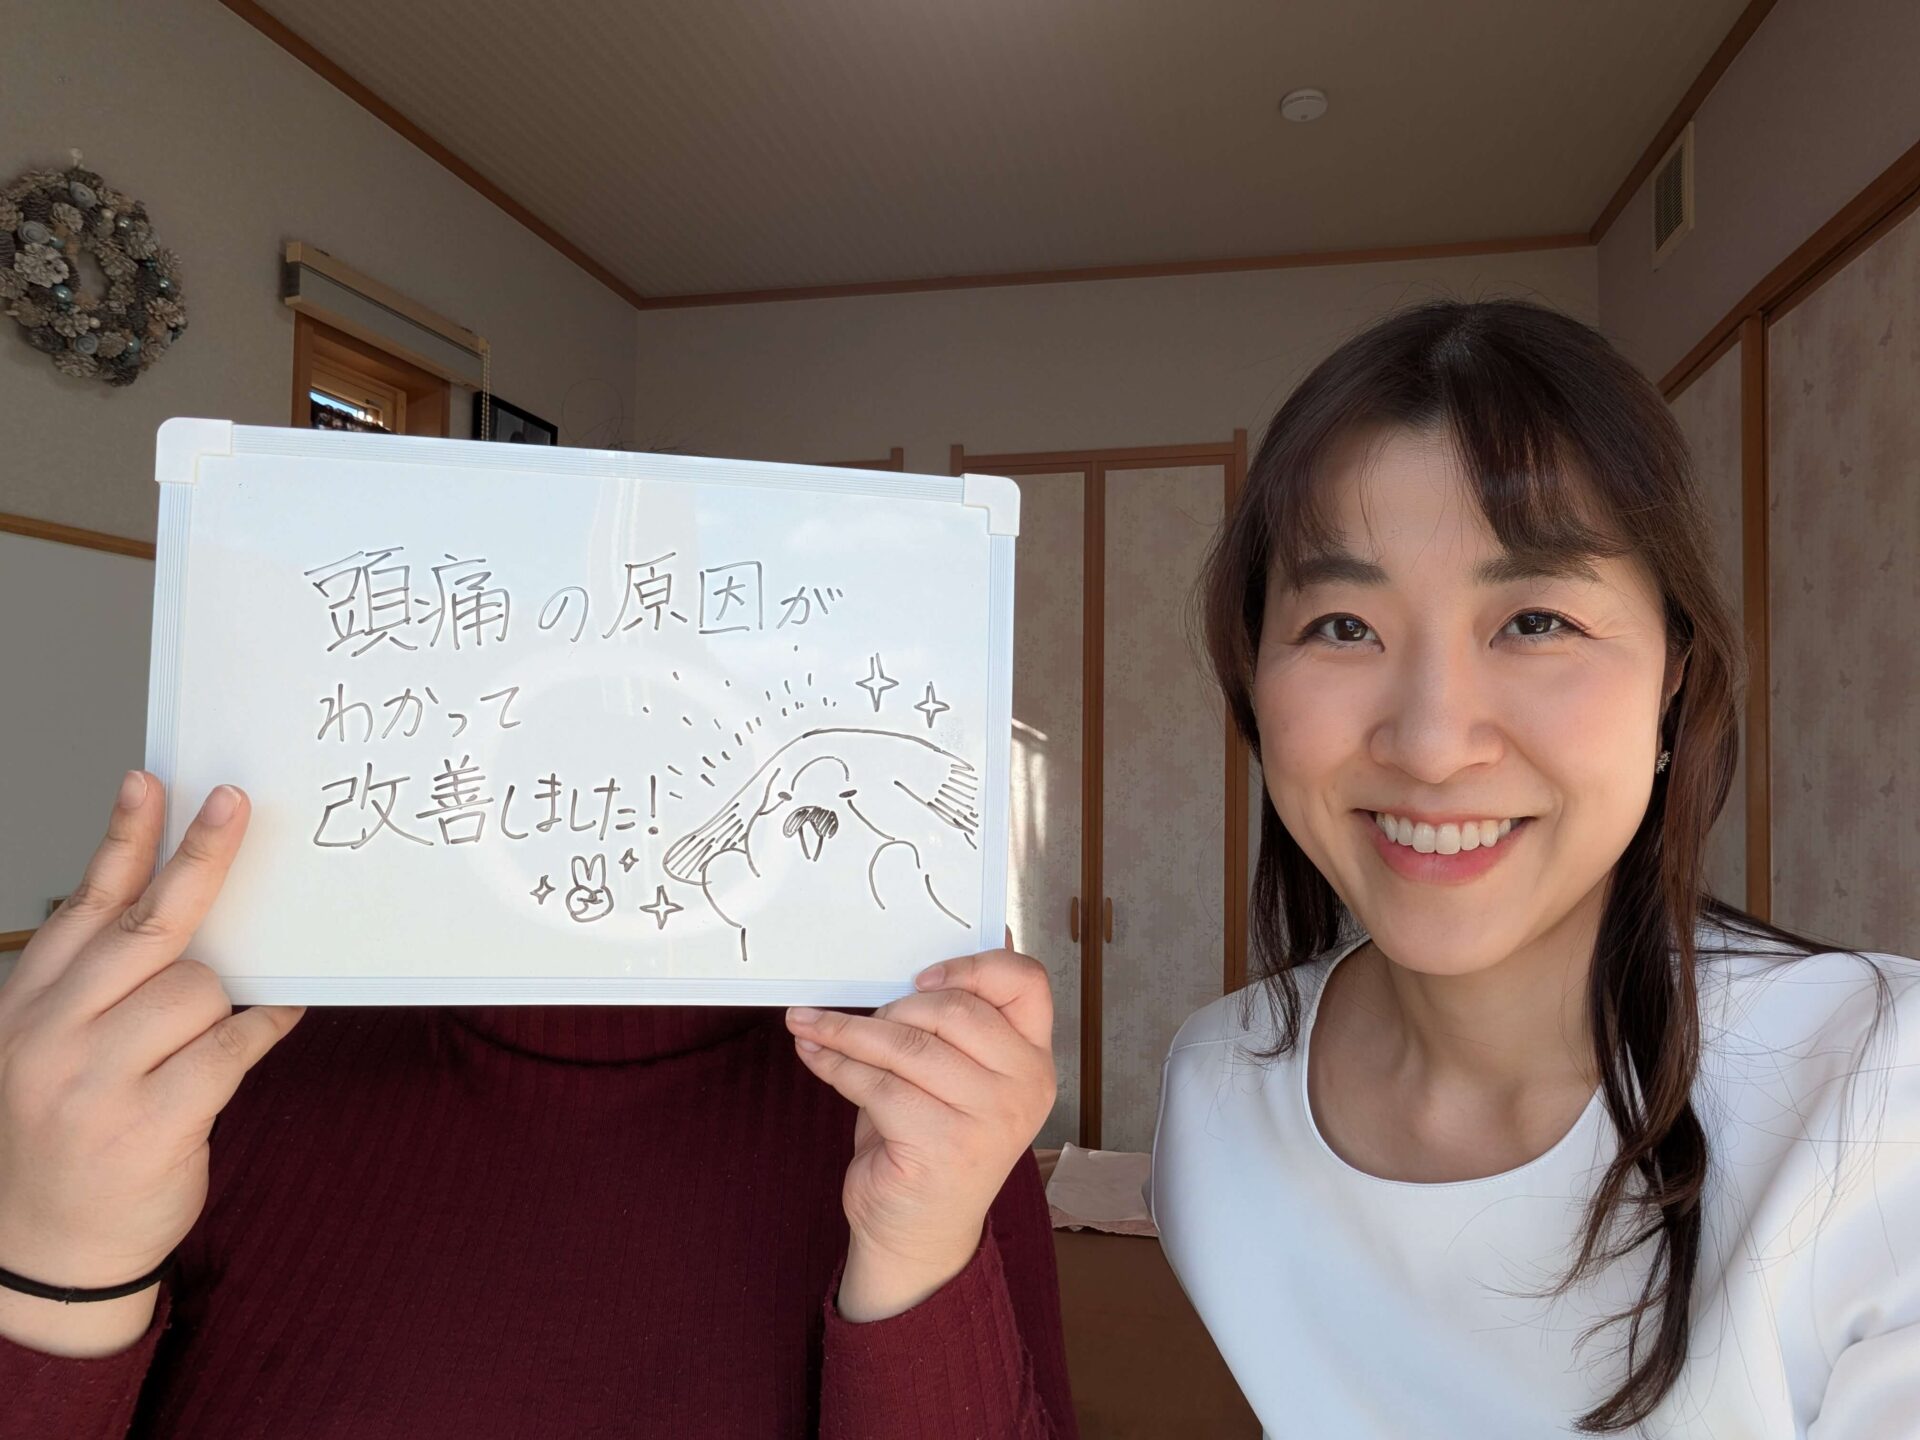 頭痛の原因が
わかって
改善しました!